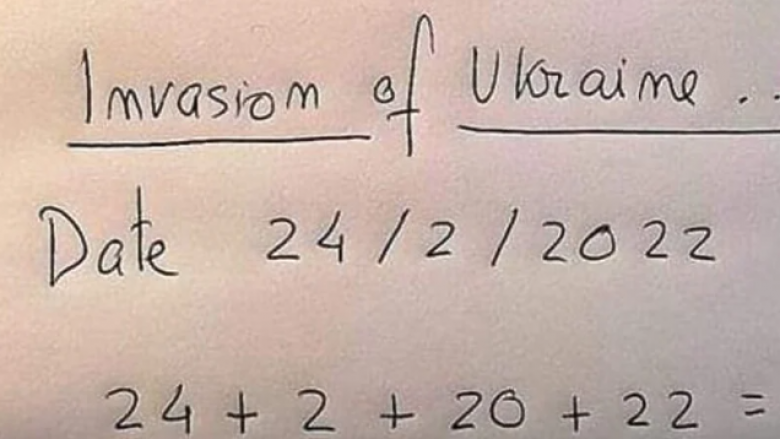 Invasion of Ukraine ..
Date 24/2/2022
24 + 2 + 20 + 22 =